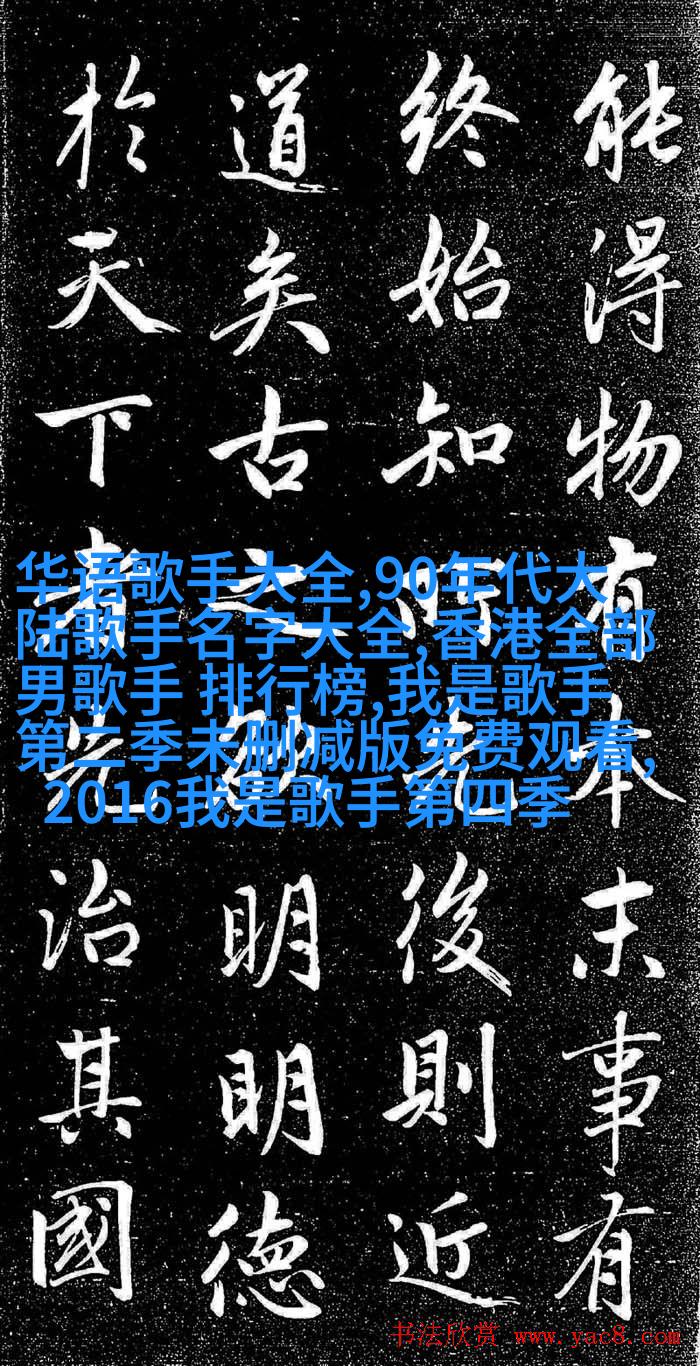 能得物有本末事有
終始知所先後則近
道矣古之欲明明德
於天下者先治其國
华语歌手大全,90年代大
陆歌手名字大全,香港全部
男歌手 排行榜,我是歌手
第二季未删减版免费观看,
2016我是歌手第四季
书法欣赏 www.yac8.com